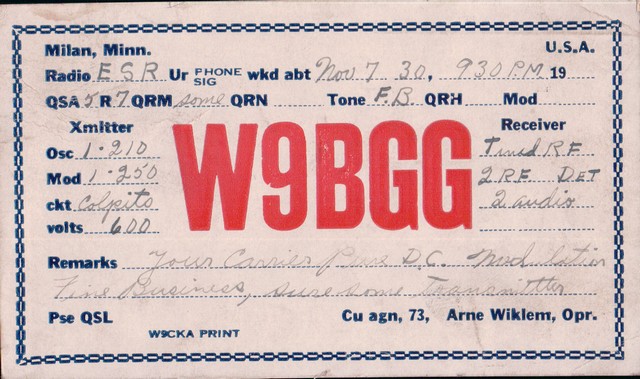 Milan, Minn. U.S.A.
Radio E S R Ur PHONE SIG wkd abt Nov 7 30, 930 P.M 19
QSA 5 R 7 QRM some QRN Tone F.B. QRH Mod
Xmitter Receiver
W9BGG
Osc 1-210 Tuned RF
Mod 1-250 2 RF DET
ckt Colpits 2 audio
volts 600
Remarks Your Carrier Pure D.C. Modulation
Fine Business, sure some Transmitter
Pse QSL Cu agn, 73, Arne Wiklem, Opr.
W9CKA PRINT